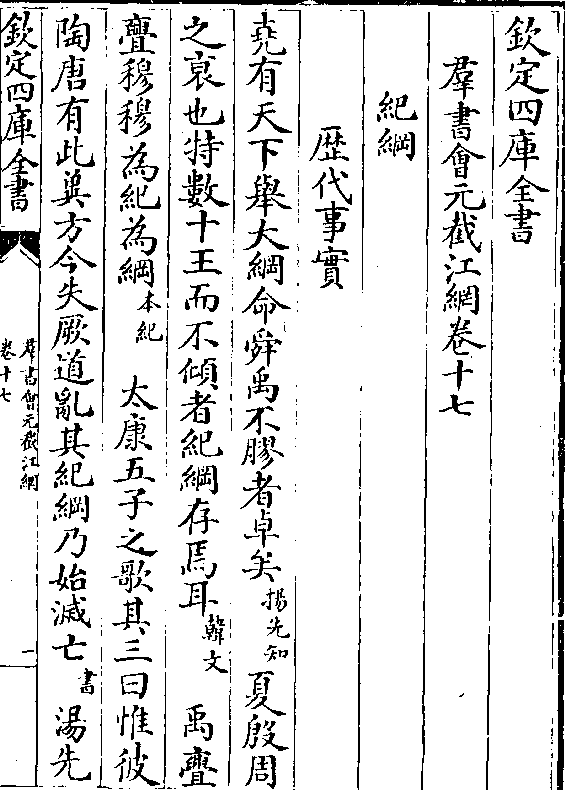 欽定四庫全書
羣書會元截江網卷十七
紀綱
歴代事實
堯有天下舉大綱命舜禹不膠者卓矣揚先知 夏殷周
之衰也特數十王而不傾者紀綱存焉耳韓文 禹亹
亹穆穆為紀為綱本紀 太康五子之歌其三曰惟彼
陶唐有此冀方今失厥道亂其紀綱乃始滅亡書 湯先
欽定四庫全書
羣書會元截江網
卷十七
一